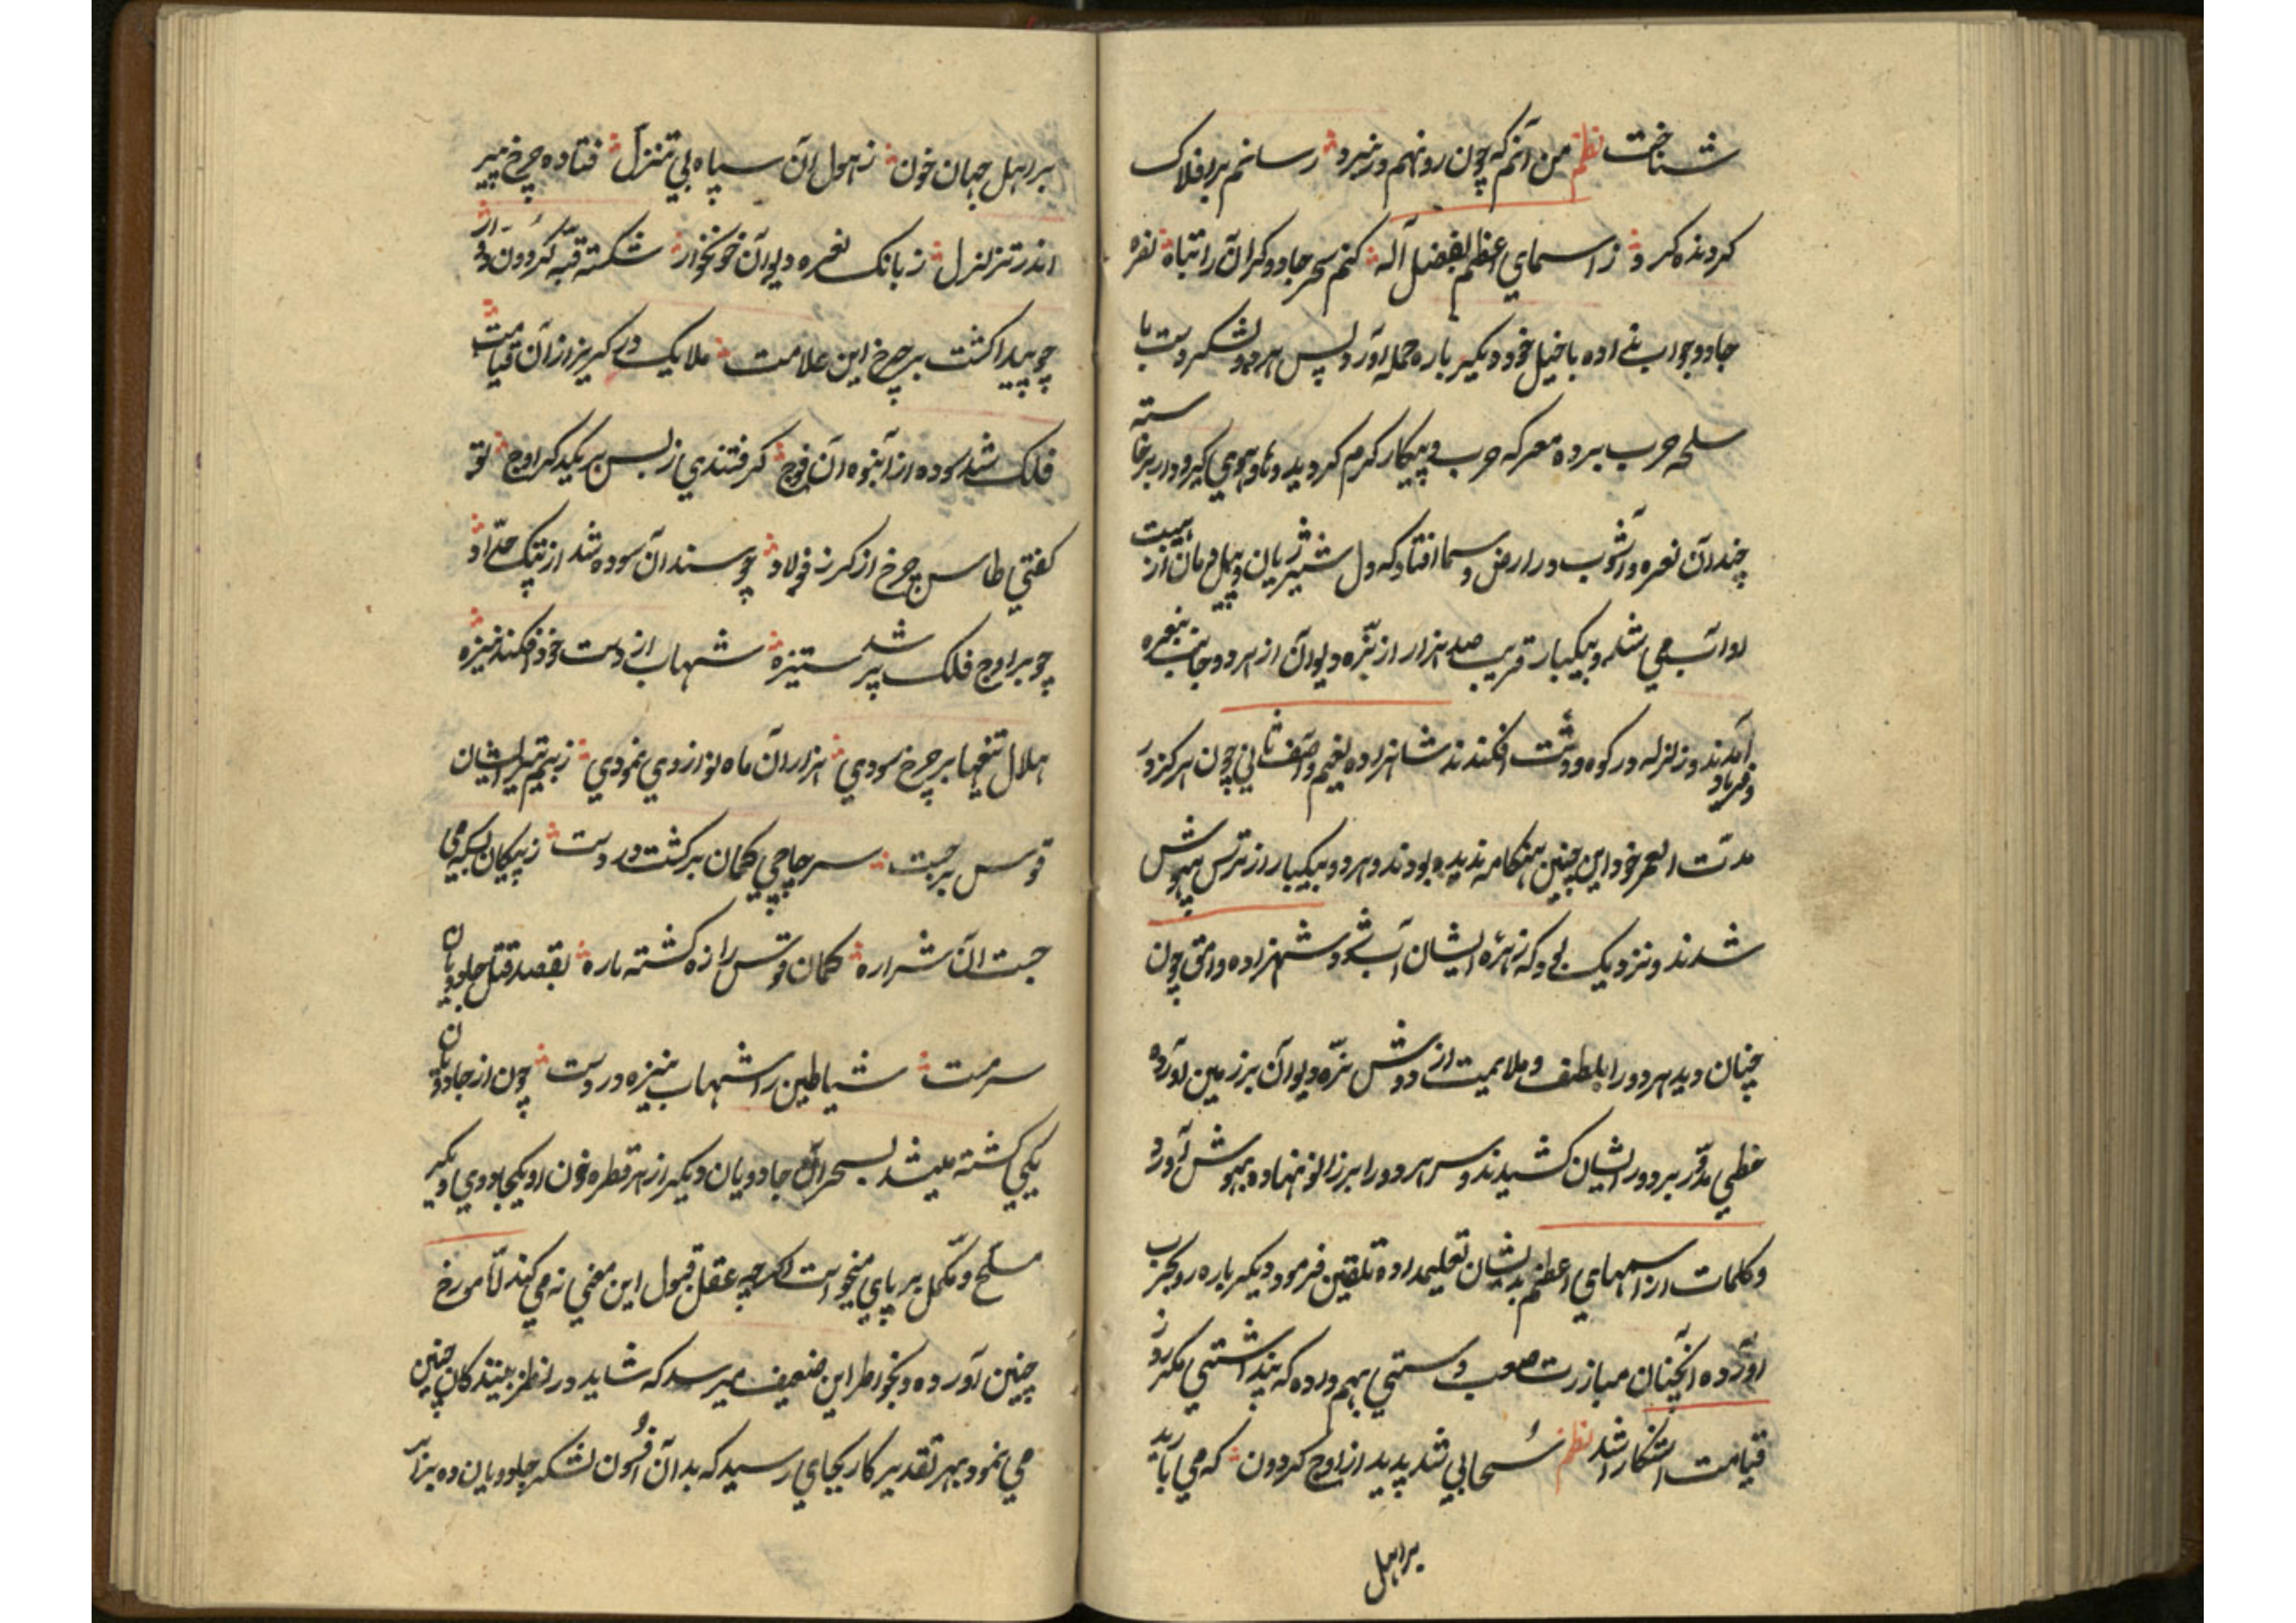 شناخت نظم من آنم که چون رو نهم در نبرد رسانم بر افلاک
کردنده کرد ز اسمای اعظم بفضل آله کنم سحر جادوکران را تباه نفره
جادو جواب نداده با خیل خود دیکر باره حمله آورد پس هر دو لشکر دست با
سلحه حرب برده معرکه حرب و پیکار کرم کردید و های و هوی کیر و دار برخاسته
چندان نعره و آشوب در ارض و سما افتاد که دل شیر ژیان و پیل دمان از هیبت
او آب می شد و بیکبار قریب صد هزار از نرّه دیوان از هر دو جانب بنعره
و فریاد آمدند و زلزله در کوه و دشت افکندند شاهزاده نعیم و آصف ثانی چون هرکز در
مدّت العمر خود این چنین هنکامه ندیده بودند و هر دو بیکبار از ترس بیهوش
شدند و نزدیک بود که زهرهٔ ایشان آب شود شهزاده وامق چون
چنان دید هر دو را بلطف و ملایمت از دوش نرّه دیوان بر زمین آورده
خطی مدوّر بر دور ایشان کشیدند و سر هر دو را بر زانو نهاده بهوش آورد
و کلمات از اسمهای اعظم بدیشان تعلیم داده تلقین فرمود و دیکر باره رو بحرب
آورده آنچنان مبارزت صعب و سختی بهم در داده که پنداشتی مکر روز
قیامت آشکارا شد نظم سحابی شد پدید از اوج کردون که می بارید
بر اهل
بر اهل جهان خون ز هول آن سپاه بی تنزل فتاده چرخ پیر
اندر تزلزل ز بانک نعره دیوان خونخوار شکسته قبّه کردون دوار
چو پیدا کشت بر چرخ این علامت ملایک در کریز از آن قیامت
فلک شد سوده از انبوه آن فوج کرفتندی ز بس بر یکدکر اوج تو
کفتی طاس چرخ از کرز فولاد چو سندان سوده شد از پتک حدّاد
چو بر اوج فلک پر شد ستیزه شهاب از دست خود افکند نیزه
هلال تیغها بر چرخ سودی هزاران ماه نو از وی نمودی ز بیم تیر ایشان
قوس برجست سر چاچی کمان برکشت در دست ز پیکان بسکه می
جست آن شراره کمان قوس را زه کشته پاره بقصد قتل جادویان
سرمست شیاطین را شهاب نیزه در دست چون از جادویان
یکی کشته میشد بسحر آن جادویان دیکر از هر قطره خون او یکجادوی دیکر
مسلّح و مکمّل بر پای میخواست اکرچه عقل قبول این معنی نمی کند امّا مورخ
چنین آورده و بخواطر این ضعیف میرسد که شاید در نظر بینندکان چنین
می نمود بهر تقدیر کار بجای رسید که بدان افسون لشکر جادویان ده برابر